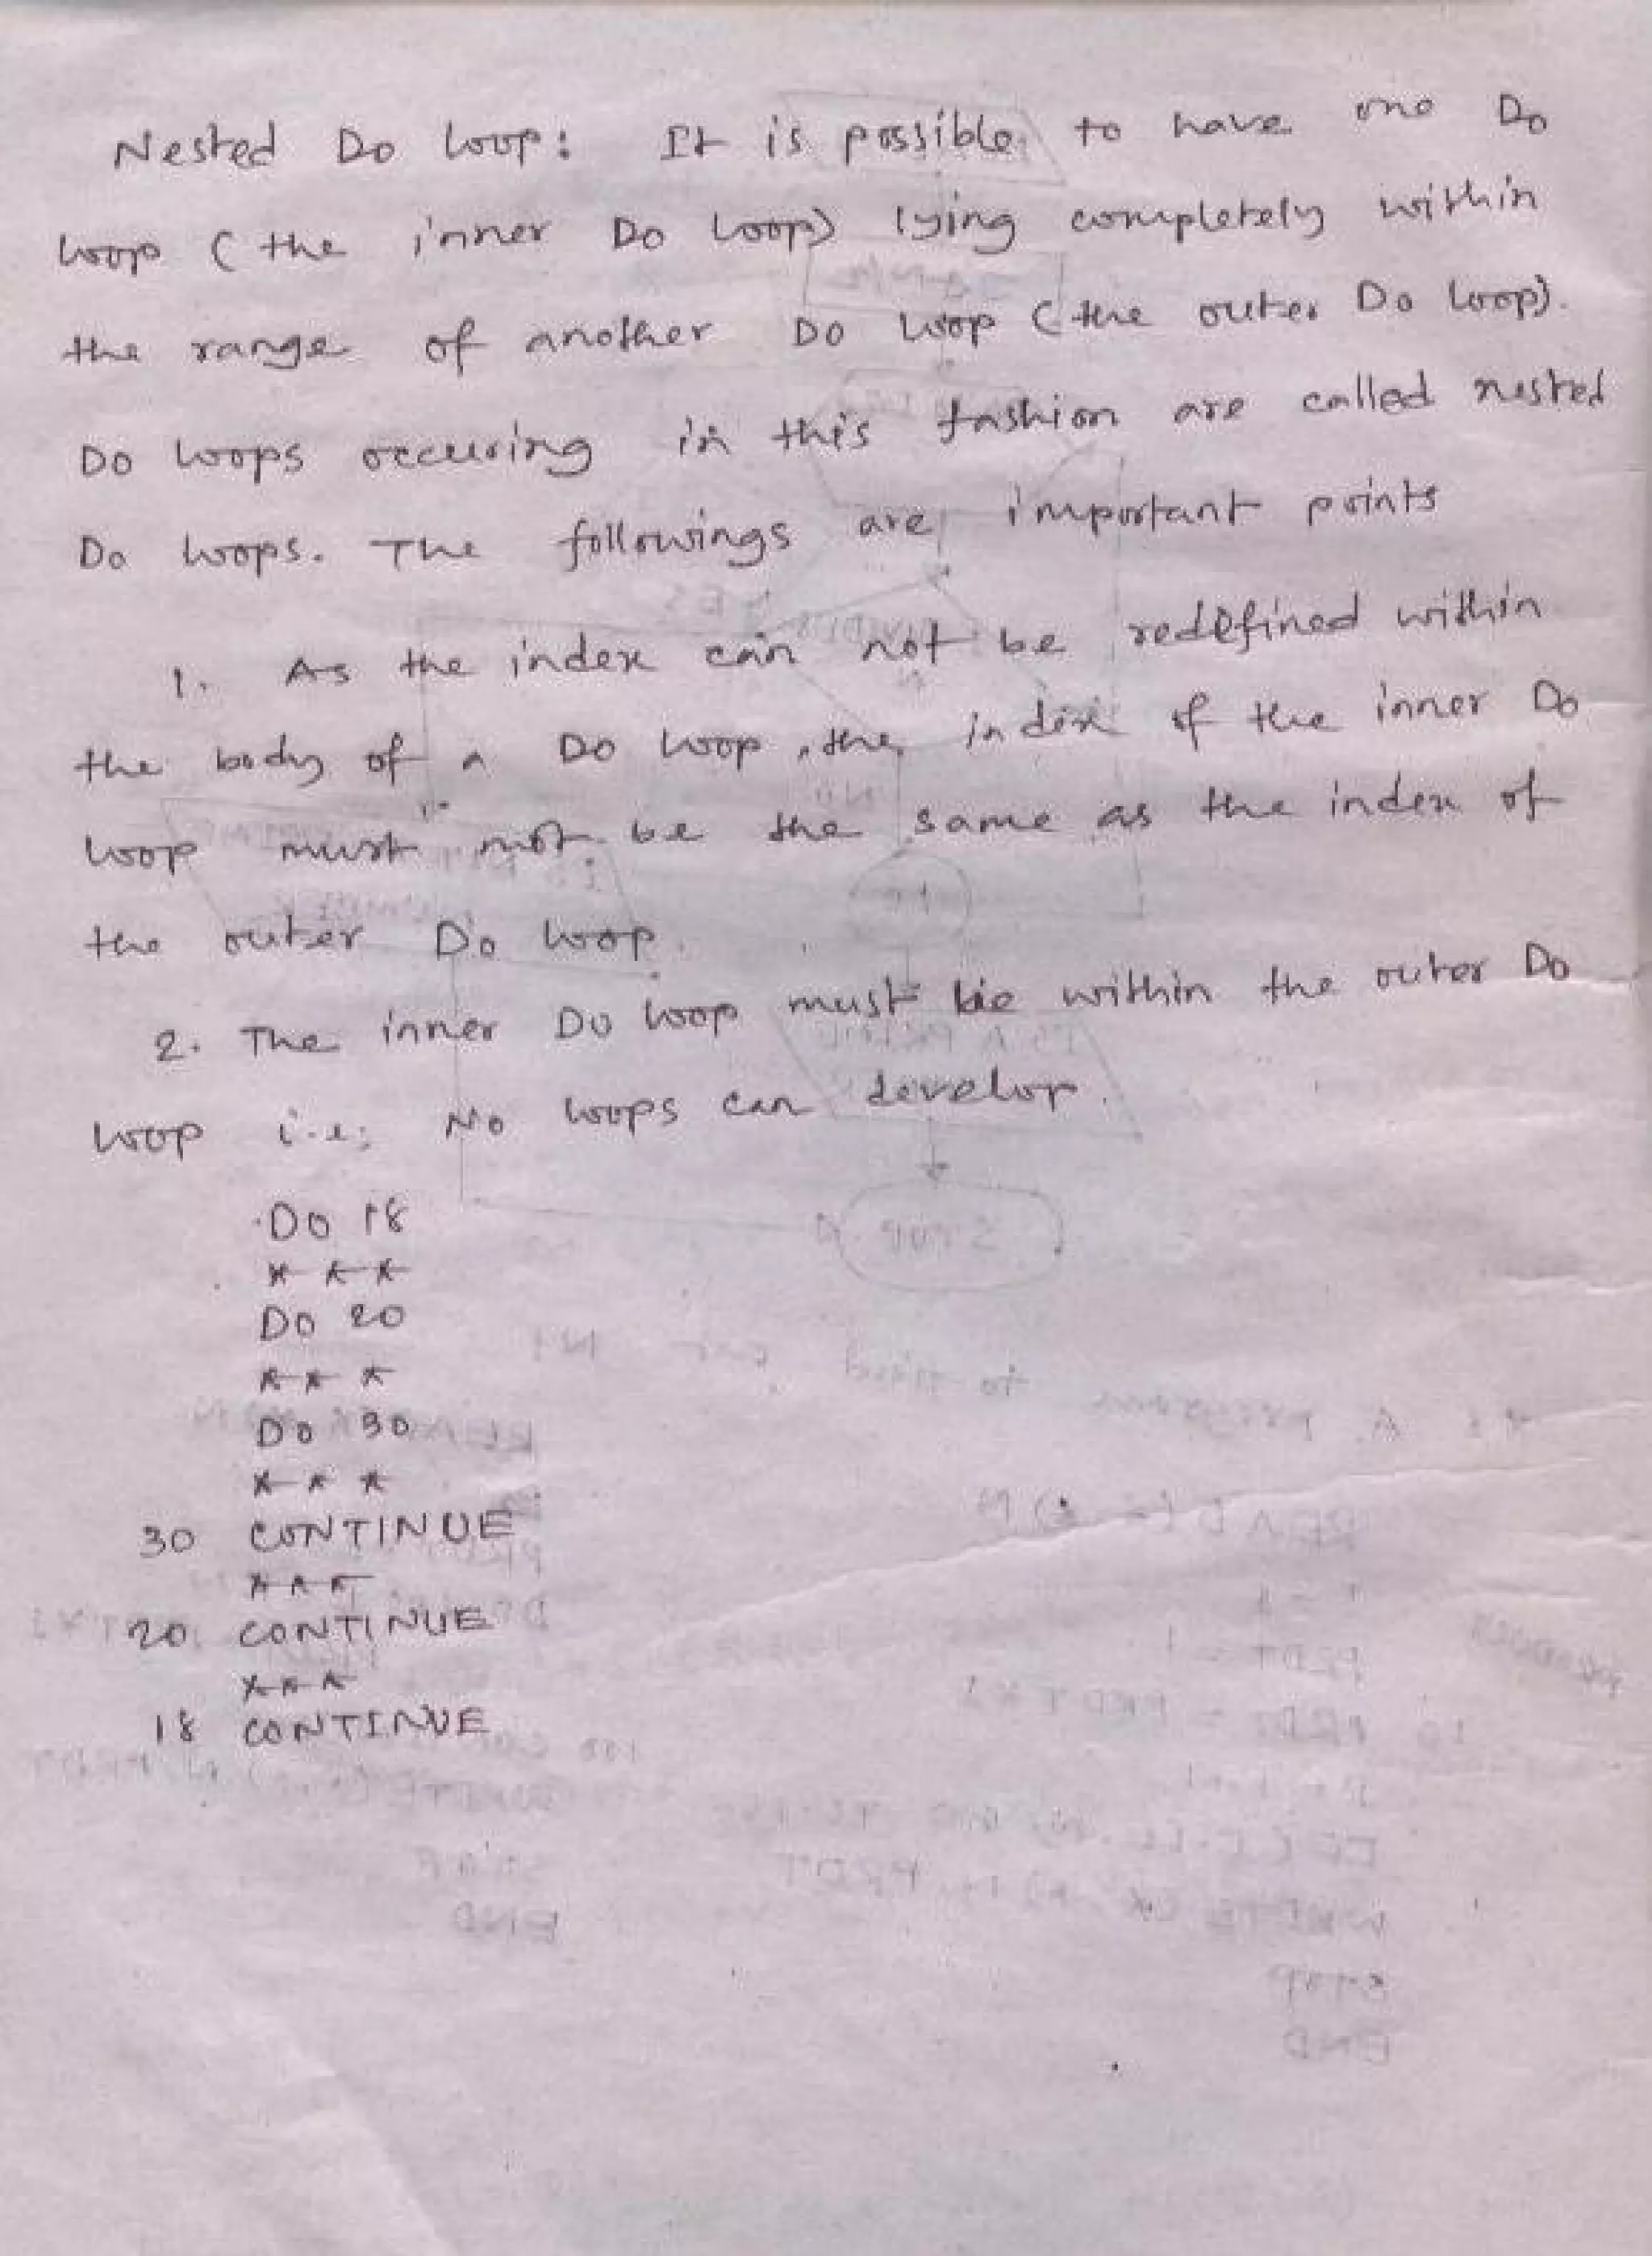 Nested Do loop: It is possible to have one Do
loop (the inner Do loop) lying completely within
the range of another Do loop (the outer Do loop).
Do loops occuring in this fashion are called nested
Do loops. The followings are important points
1. As the index can not be redefined within
the body of a Do loop, the index of the inner Do
loop must not be the same as the index of
the outer Do loop.
2. The inner Do loop must lie within the outer Do
loop i.e; No loops can develop.
DO 18
* * *
DO 20
* * *
DO 30
* * *
30 CONTINUE
* * *
20 CONTINUE
* * *
18 CONTINUE